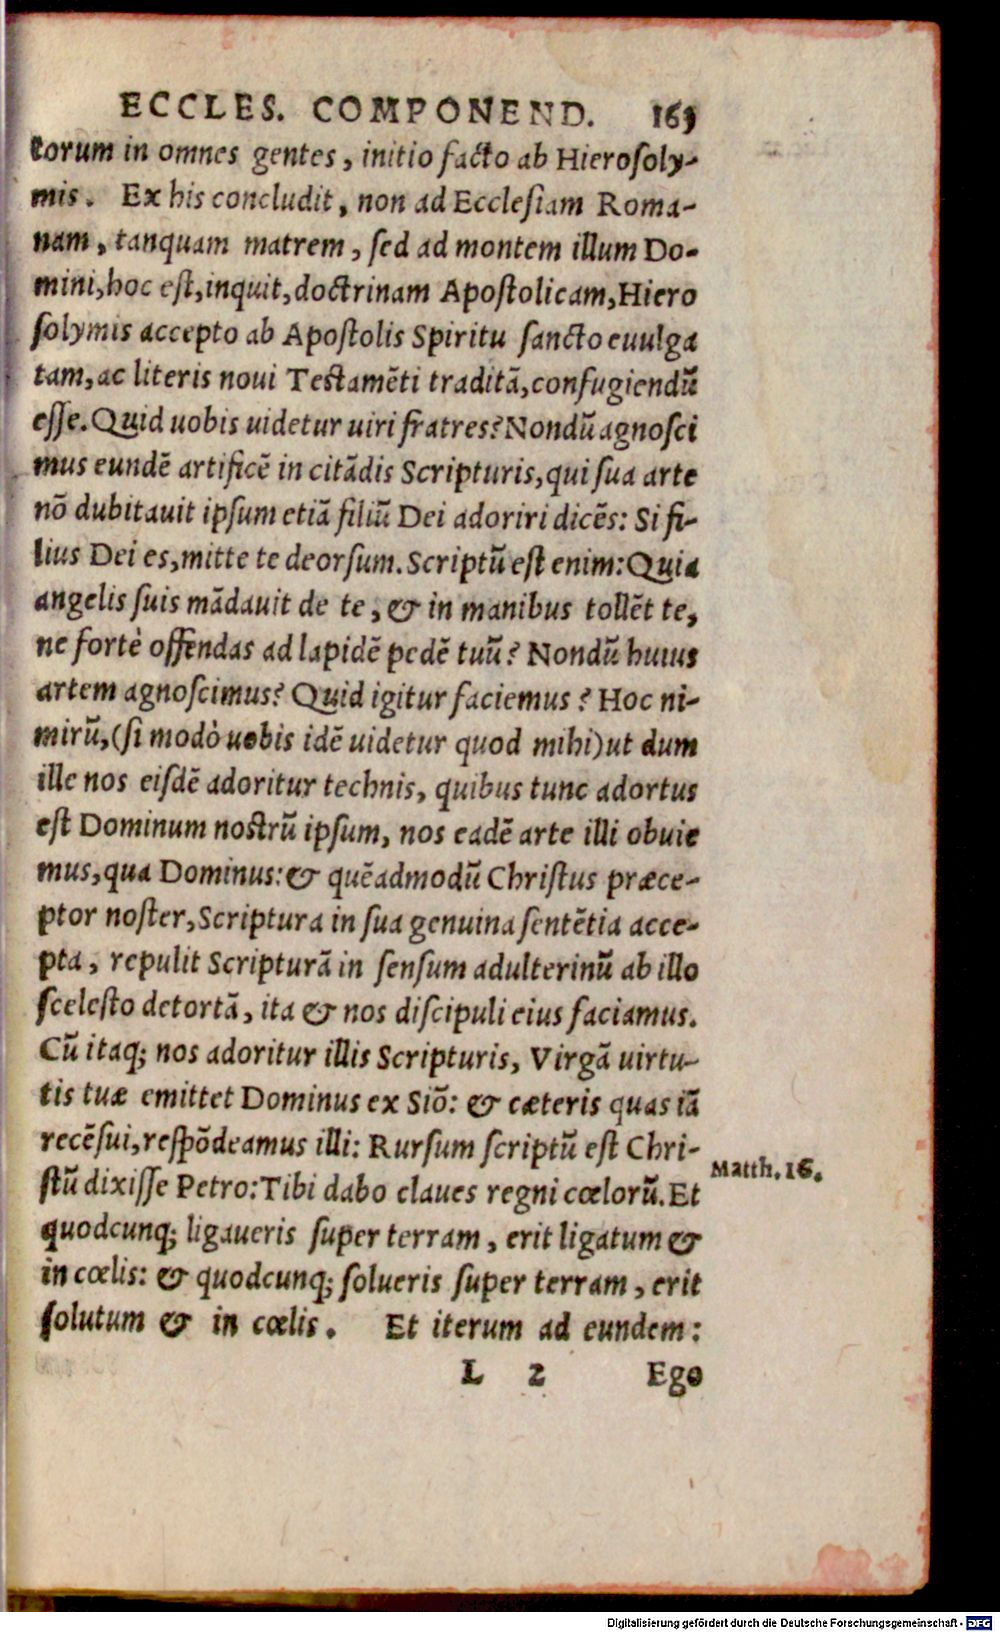 ECCLES. COMPONEND. 163
torum in omnes gentes, initio facto ab Hierosoly-
mis. Ex his concludit, non ad Ecclesiam Roma-
nam, tanquam matrem, sed ad montem illum Do-
mini, hoc est, inquit, doctrinam Apostolicam, Hiero
solymis accepto ab Apostolis Spiritu sancto euulga
tam, ac literis noui Testamēti traditā, confugiendū
esse. Quid uobis uidetur uiri fratres? Nondū agnosci
mus eundē artificē in citādis Scripturis, qui sua arte
nō dubitauit ipsum etiā filiū Dei adoriri dicēs: Si fi-
lius Dei es, mitte te deorsum. Scriptū est enim: Quia
angelis suis mādauit de te, & in manibus tollēt te,
ne fortè offendas ad lapidē pedē tuū? Nondū huius
artem agnoscimus? Quid igitur faciemus? Hoc ni-
mirū, (si modò uobis idē uidetur quod mihi) ut dum
ille nos eisdē adoritur technis, quibus tunc adortus
est Dominum nostrū ipsum, nos eadē arte illi obuie
mus, qua Dominus: & quēadmodū Christus præce-
ptor noster, Scriptura in sua genuina sentētia acce-
pta, repulit Scripturā in sensum adulterinū ab illo
scelesto detortā, ita & nos discipuli eius faciamus.
Cū itaq; nos adoritur illis Scripturis, Virgā uirtu-
tis tuæ emittet Dominus ex Siō: & cæteris quas iā
recēsui, respōdeamus illi: Rursum scriptū est Chri-
stū dixisse Petro: Tibi dabo claues regni cœlorū. Et
Matth. 16.
quodcunq; ligaueris super terram, erit ligatum &
in cœlis: & quodcunq; solueris super terram, erit
solutum & in cœlis. Et iterum ad eundem:
L 2 Ego
Digitalisierung gefördert durch die Deutsche Forschungsgemeinschaft - DFG